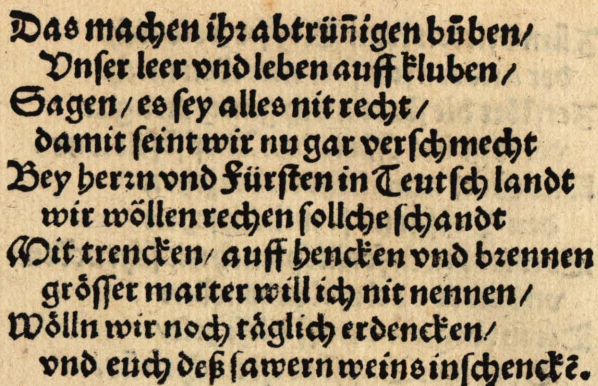 Das machen ihr abtrün̄igen bůben/
Vnser leer vnd leben auff kluben/
Sagen/ es sey alles nit recht/
damit seint wir nu gar verschmecht
Bey herrn vnd Fürsten in Teutsch landt
wir wöllen rechen sollche schandt
Mit trencken/ auff hencken vnd brennen
grösser marter will ich nit nennen/
Wölln wir noch täglich erdencken/
vnd euch deß sawern weins inschenckē.